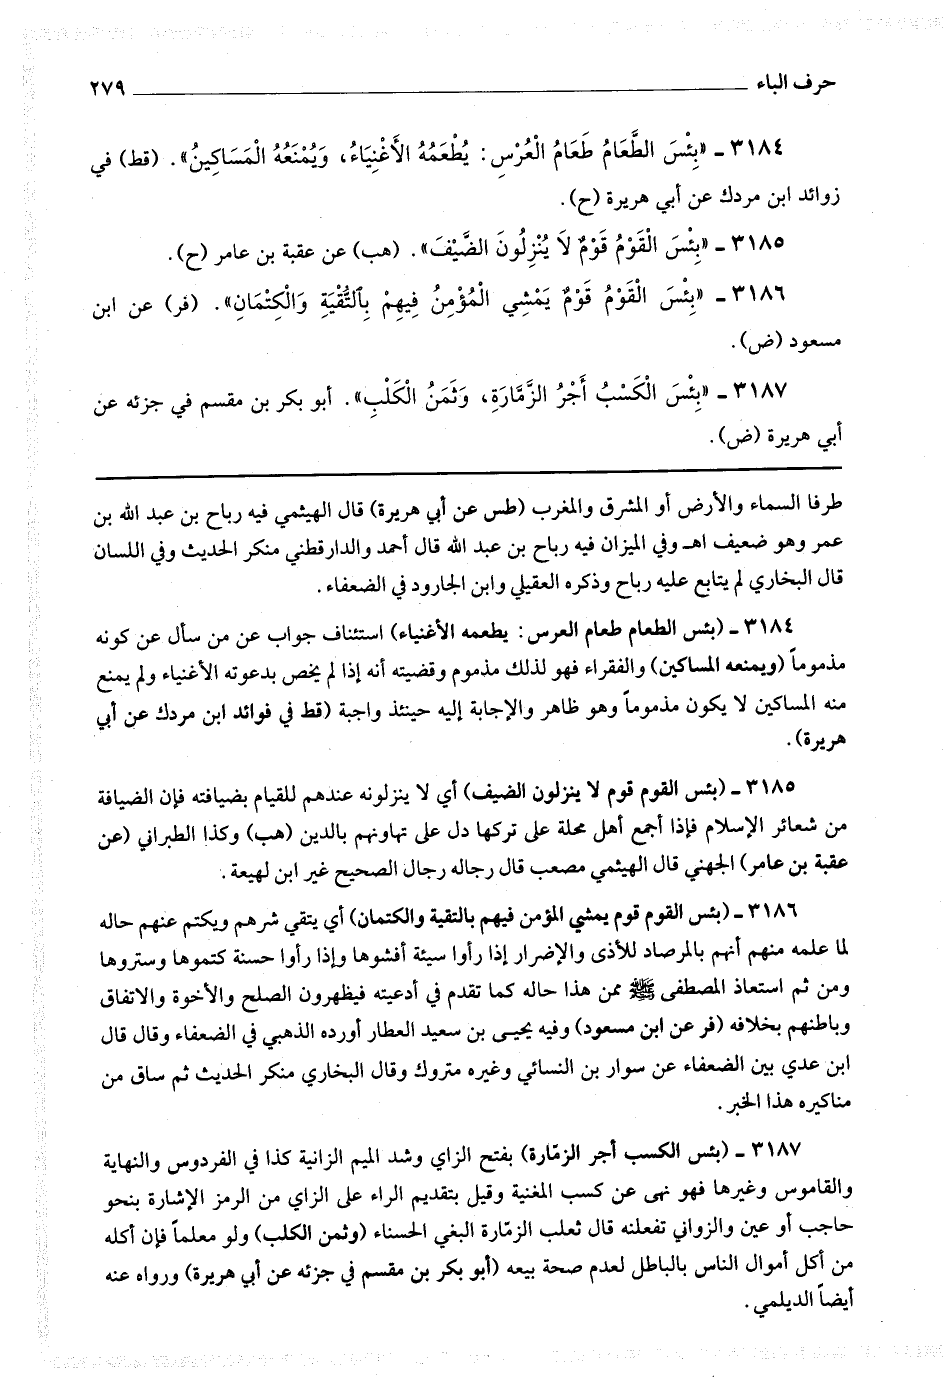 حرف الباء ٢٧٩
٣١٨٤ ـ «بِئْسَ الطَّعَامُ طَعَامُ الْعُرْسِ: يُطْعَمُهُ الأَغْنِيَاءُ، وَيُمْنَعُهُ الْمَسَاكِينُ». (قط) في
زوائد ابن مردك عن أبي هريرة (ح).
٣١٨٥ ـ «بِئْسَ الْقَوْمُ قَوْمٌ لاَ يُنْزِلُونَ الضَّيْفَ». (هب) عن عقبة بن عامر (ح).
٣١٨٦ ـ «بِئْسَ الْقَوْمُ قَوْمٌ يَمْشِي الْمُؤْمِنُ فِيهِمْ بِٱلتُّقْيَةِ وَالْكِتْمَانِ». (فر) عن ابن
مسعود (ض).
٣١٨٧ ـ «بِئْسَ الْكَسْبُ أَجْرُ الزَّمَّارَةِ، وَثَمَنُ الْكَلْبِ». أبو بكر بن مقسم في جزئه عن
أبي هريرة (ض).
طرفا السماء والأرض أو المشرق والمغرب (طس عن أبي هريرة) قال الهيثمي فيه رباح بن عبد الله بن
عمر وهو ضعيف اهـ وفي الميزان فيه رباح بن عبد الله قال أحمد والدارقطني منكر الحديث وفي اللسان
قال البخاري لم يتابع عليه رباح وذكره العقيلي وابن الجارود في الضعفاء.
٣١٨٤ ـ (بئس الطعام طعام العرس: يطعمه الأغنياء) استئناف جواب عن من سأل عن كونه
مذموماً (ويمنعه المساكين) والفقراء فهو لذلك مذموم وقضيته أنه إذا لم يخص بدعوته الأغنياء ولم يمنع
منه المساكين لا يكون مذموماً وهو ظاهر والإجابة إليه حينئذ واجبة (قط في فوائد ابن مردك عن أبي
هريرة).
٣١٨٥ ـ (بئس القوم قوم لا ينزلون الضيف) أي لا ينزلونه عندهم للقيام بضيافته فإن الضيافة
من شعائر الإسلام فإذا أجمع أهل محلة على تركها دل على تهاونهم بالدين (هب) وكذا الطبراني (عن
عقبة بن عامر) الجهني قال الهيثمي مصعب قال رجاله رجال الصحيح غير ابن لهيعة.
٣١٨٦ ـ (بئس القوم قوم يمشي المؤمن فيهم بالتقية والكتمان) أي يتقي شرهم ويكتم عنهم حاله
لما علمه منهم أنهم بالمرصاد للأذى والإضرار إذا رأوا سيئة أفشوها وإذا رأوا حسنة كتموها وستروها
ومن ثم استعاذ المصطفى ﷺ ممن هذا حاله كما تقدم في أدعيته فيظهرون الصلح والأخوة والاتفاق
وباطنهم بخلافه (فر عن ابن مسعود) وفيه يحيى بن سعيد العطار أورده الذهبي في الضعفاء وقال قال
ابن عدي بين الضعفاء عن سوار بن النسائي وغيره متروك وقال البخاري منكر الحديث ثم ساق من
مناكيره هذا الخبر.
٣١٨٧ ـ (بئس الكسب أجر الزمّارة) بفتح الزاي وشد الميم الزانية كذا في الفردوس والنهاية
والقاموس وغيرها فهو نهى عن كسب المغنية وقيل بتقديم الراء على الزاي من الرمز الإشارة بنحو
حاجب أو عين والزواني تفعلنه قال ثعلب الزمّارة البغي الحسناء (وثمن الكلب) ولو معلماً فإن أكله
من أكل أموال الناس بالباطل لعدم صحة بيعه (أبو بكر بن مقسم في جزئه عن أبي هريرة) ورواه عنه
أيضاً الديلمي.